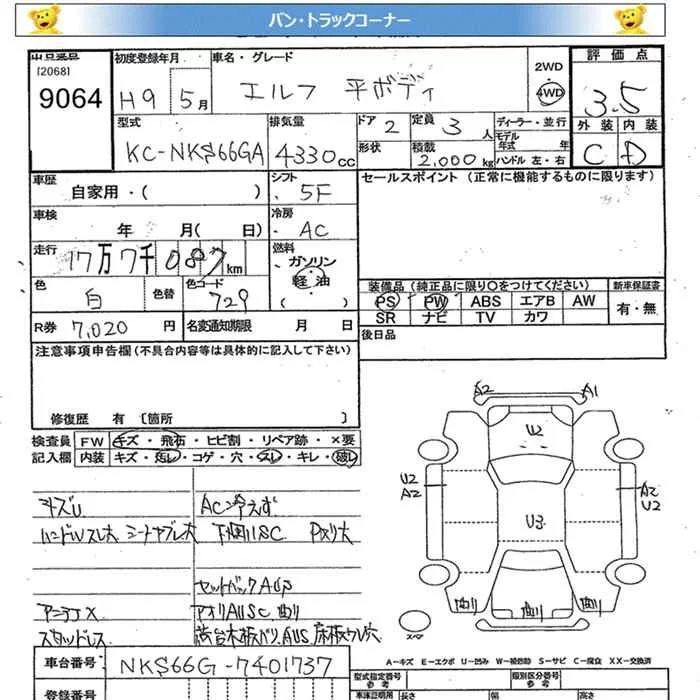 バン・トラックコーナー
出品番号 初度登録年月 車名・グレード 2WD 評価点
[2068]
9064 H9 5月 エルフ 平ボディ 4WD 3.5
型式 排気量 ドア 2 定員 3人 ディーラー・並行 外装 内装
KC-NKS66GA 4330cc 形状 積載 2,000kg モデル年式 年 ハンドル 左・右 C D
車歴 自家用・( ) シフト 5F セールスポイント (正常に機能するものに限ります)
車検 年 月( 日) 冷房 AC
走行 17万7千087km 燃料 ガソリン 軽油 ( )
色 白 色替 色コード 729 装備品(純正品に限り○をつけてください) 新車保証書
PS PW ABS エアB AW 有・無
SR ナビ TV カワ
R券 7,020円 名変通知期限 月 日 後日品
注意事項申告欄(不具合内容等は具体的に記入して下さい)
修復歴 有 [箇所 ]
検査員 FW キズ・飛石・ヒビ割・リペア跡・×要
記入欄 内装 キズ・汚レ・コゲ・穴・スレ・キレ・破レ
A2 A1
U2
U2 A2
A2 U2
U3
キズU ACン冷えず
ハンドルスレ大 シート
セットバックAUP
アンテナX アオリAUSC 曲り
スタッドレス 荷台木板バリ,AUS,床板ウレ穴
曲り 曲り 曲り
スペア
A−キズ E−エクボ U−凹み W−補修跡 S−サビ C−腐食 XX−交換済
車台番号 NKS66G-7401737 型式指定番号 参考 類別区分番号 参考
登録番号 車庫証明用 長さ 幅 高さ